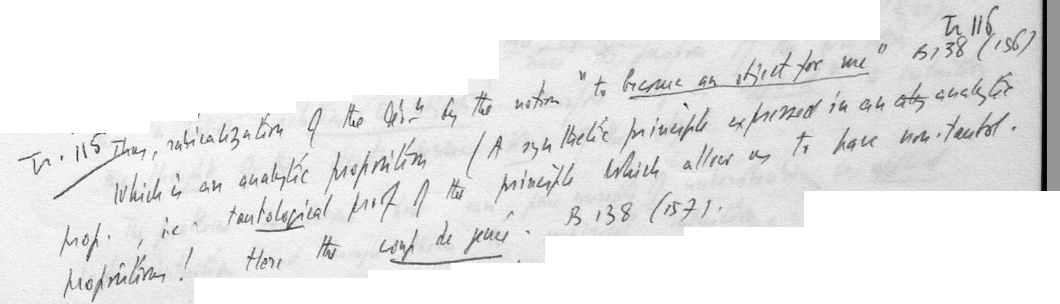 Tr 116
Tr. 115 Thus, radicalization of the by the notion "to become an object for me" B 138 (156)
Which is an analytic proposition (A synthetic principle expressed in an analytic
prop., i.e. tautological proof of the principle which allow us to have non-tautol.
propositions! Here the coup de génie. B 138 (157).